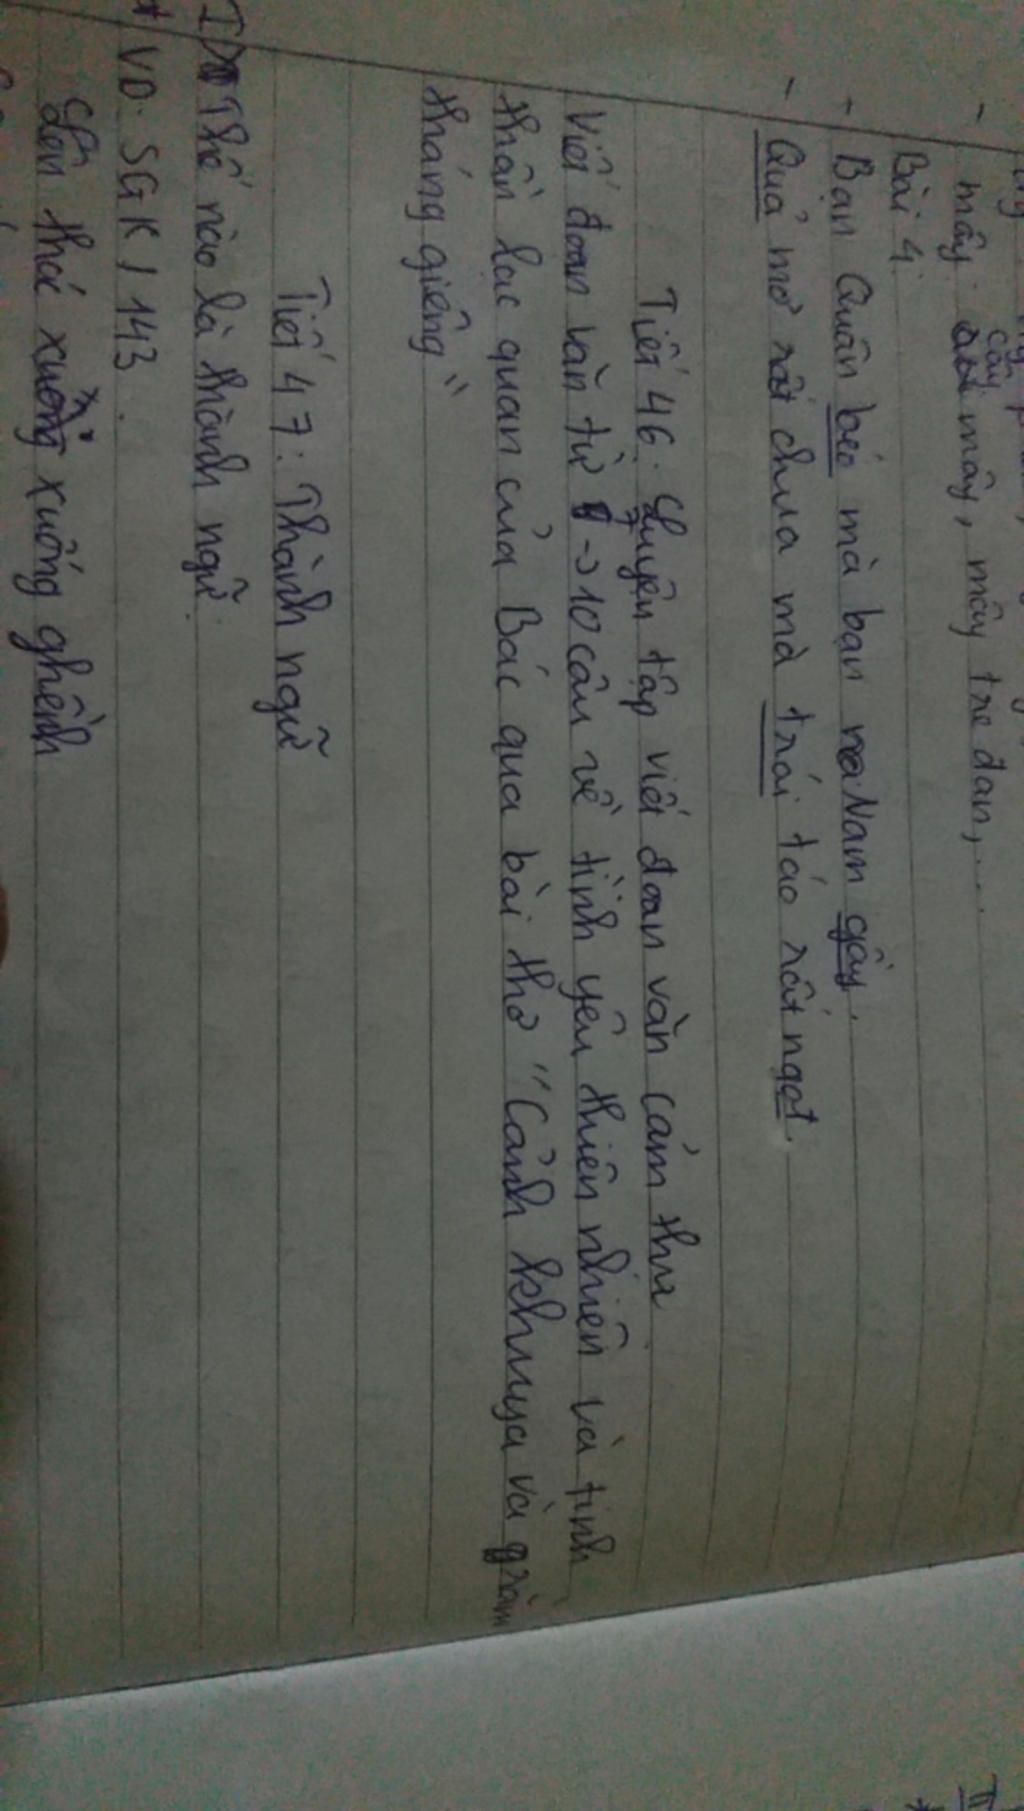 - mây: cây mây, mây tre đan,...
Bài 4:
- Bạn Quân béo mà bạn Nam gầy.
- Quả mơ rất chua mà trái táo rất ngọt.
Tiết 46: Luyện tập viết đoạn văn cảm thụ
Viết đoạn văn từ 7 -> 10 câu về tình yêu thiên nhiên và tinh
thần lạc quan của Bác qua bài thơ "Cảnh khuya và Rằm
tháng giêng"
Tiết 47: Thành ngữ
I) Thế nào là thành ngữ
* VD: SGK / 143.
Lên thác xuống ghềnh